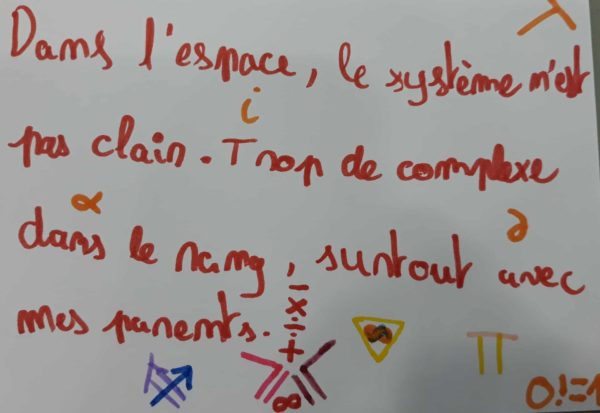 Dans l'espace, le système n'est
i
pas clair. Trop de complexe
α
∂
dans le rang, surtout avec
mes parents.
- × ÷ +
∞
π
0!=1